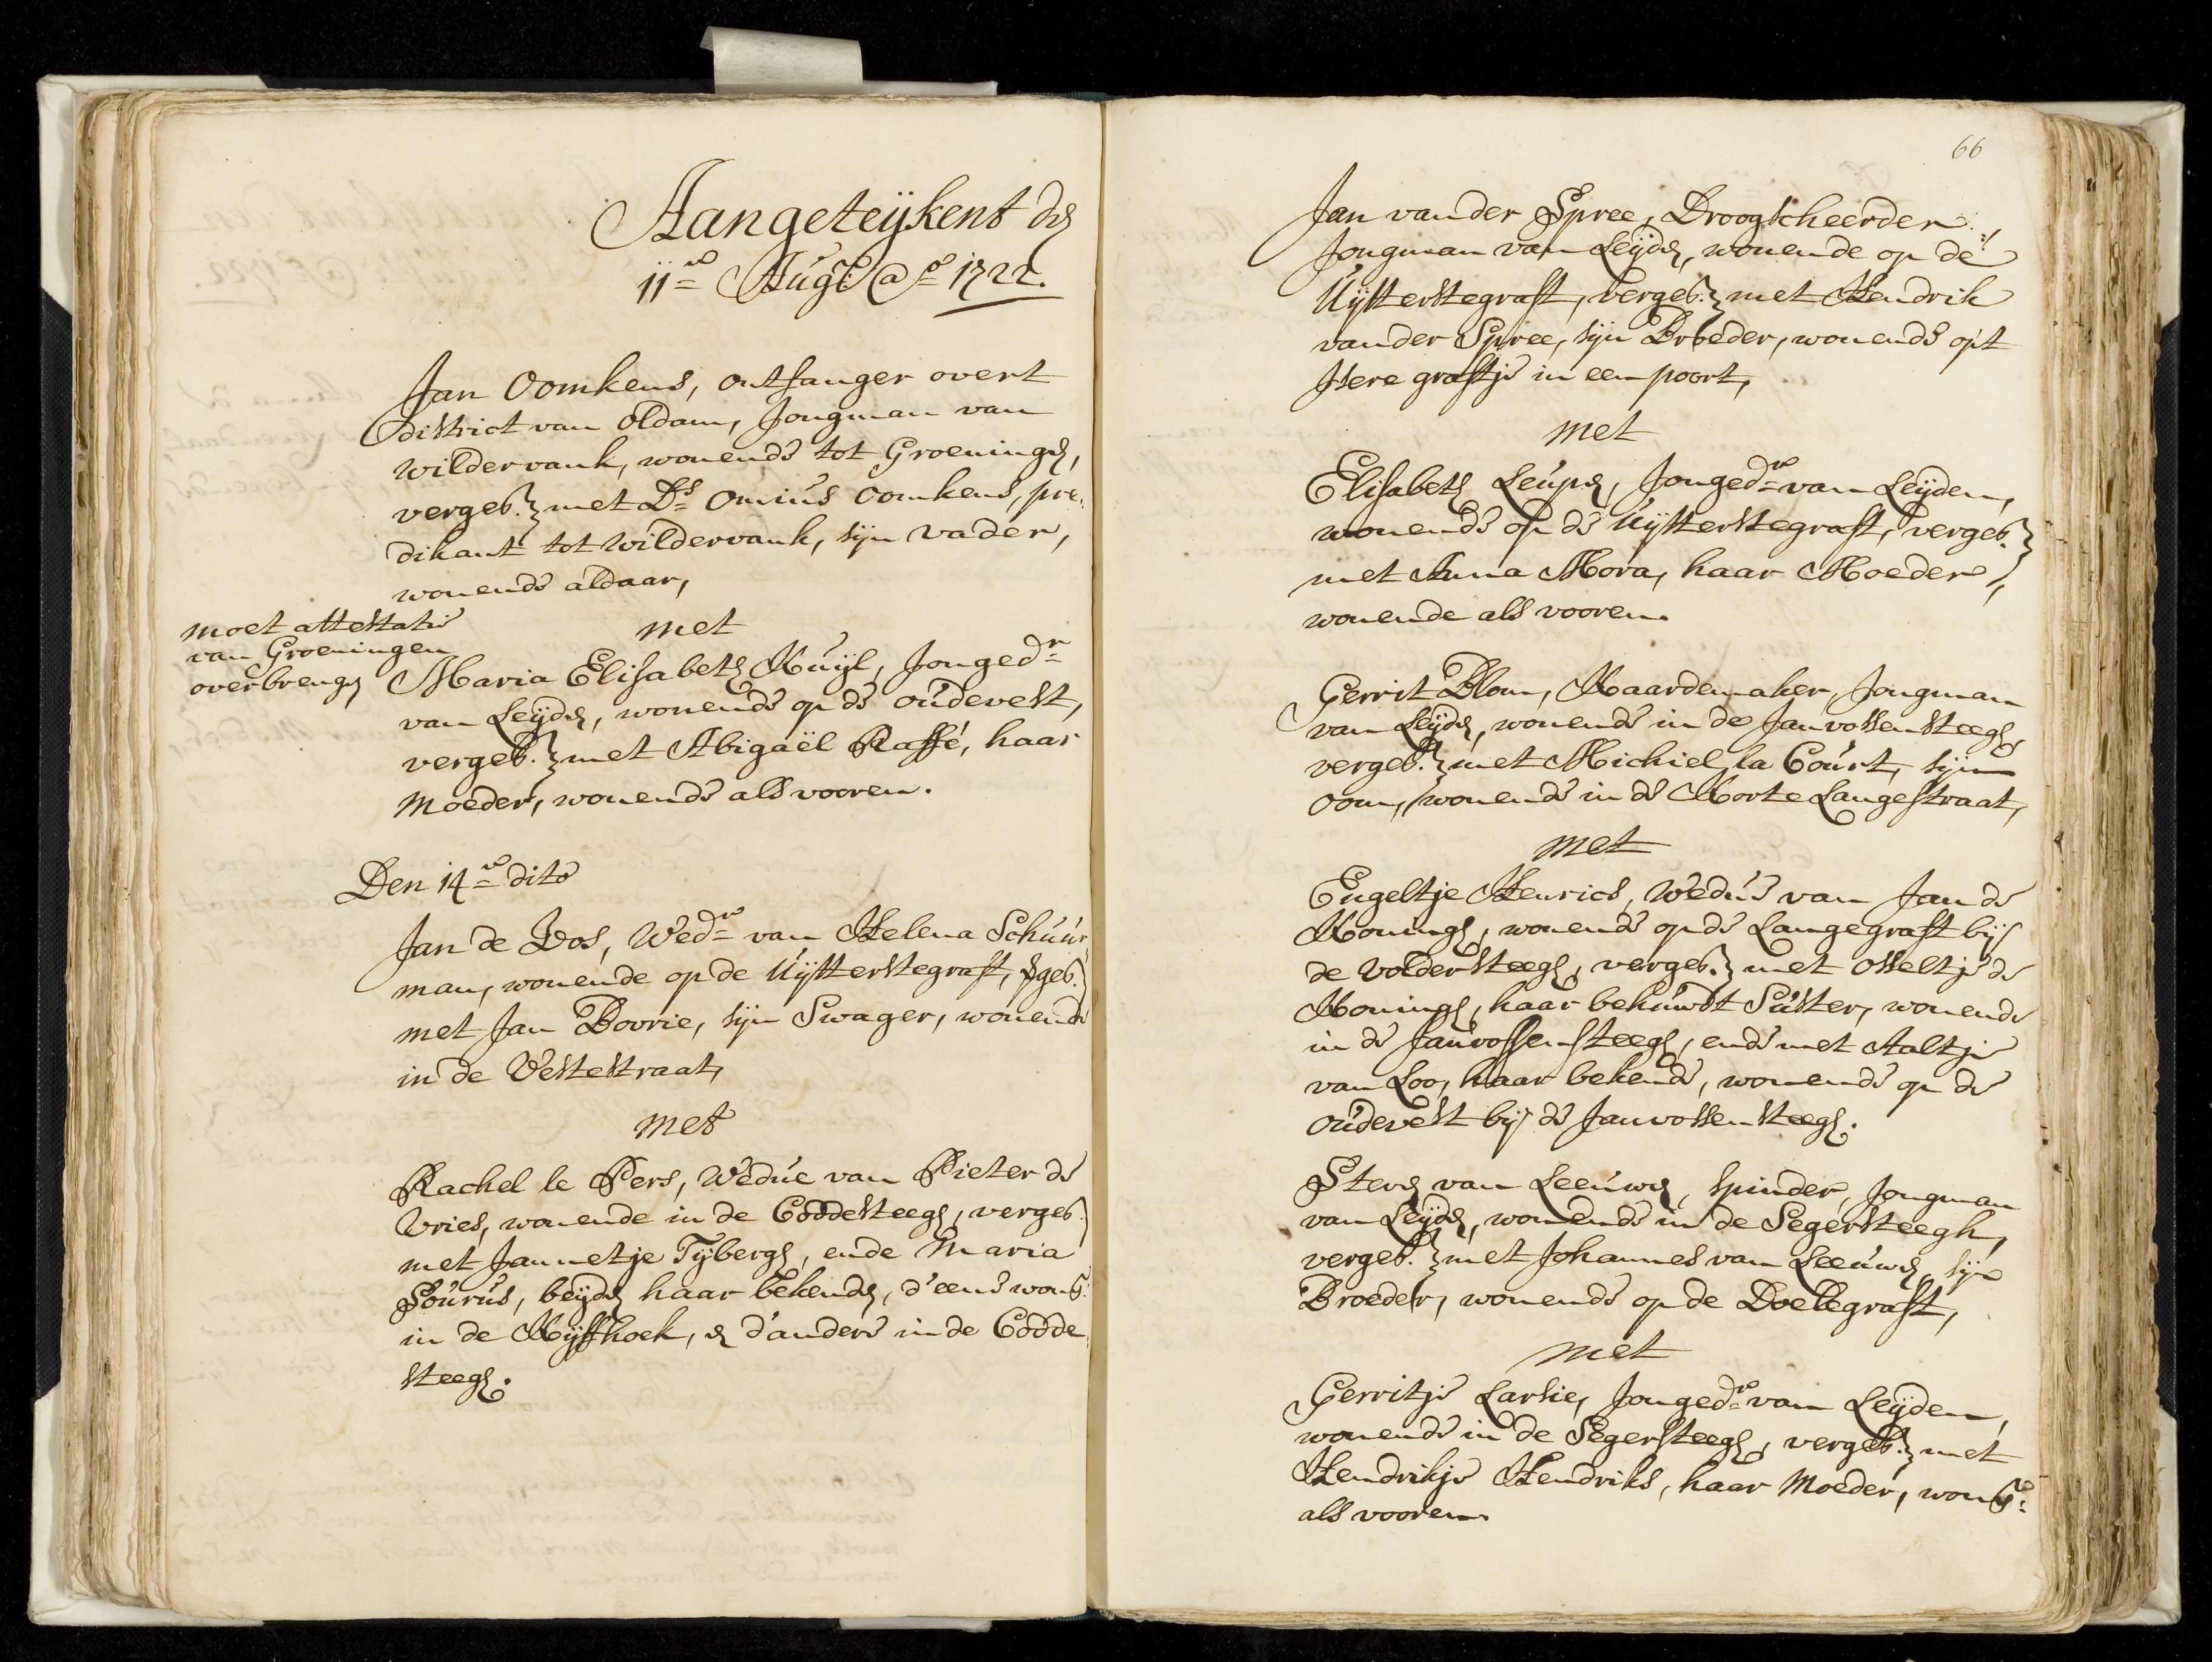 Aangeteykent den
11en Augt: ao 1722.
Jan Oomkens, ontfanger overt
district van oldam, Jongman van
wildervank, wonende tot Groeningen,
vergeb: met Ds Omius Oomkens, pre-
dikant tot wildervank, sijn vader,
wonende aldaar,
moet attestatie
van Groeningen
overbrengen
met
Maria Elisabeth Kuijl, Jongedr
van Leijden, wonende op de oudevest,
vergeb: met Abigaël Raffé, haar
moeder, wonende als vooren.
Den 14en dito
Jan de Vos, Wedr van Helena Schuur-
man, wonende op de Uijtterstegraft, vgeb:
met Jan Bovrie, sijn Swager, wonende
in de Vestestraat,
met
Rachel le Pers, Weduẽ van Pieter de
Vries, wonende in de Coddesteegh, vergeb:
met Jannetje Tijbergh, ende Maria
Sourus, beijde haar bekenden, d'eene wonb:
in de Kijfhoek, en d'andere in de Codde-
steegh.
66
Jan vander Spree, Droogscheerder,
Jongman van Leijden, wonende op de
Uijtterstegraft, vergeb: met Hendrik
vander Spree, sijn Broeder, wonende opt
Jsere graftje in een poort,
met
Elisabeth Leupen, Jongedr van Leijden,
wonende op de Uijtterstegraft, vergeb:
met Anna Mora, haar Moeder,
wonende als vooren.
Gerrit Blom, Kaardemaker, Jongman
van Leijden, wonende in de Janvossensteegh,
vergeb: met Michiel la Court, sijn
oom, wonende in de Korte Langestraat,
met
Engeltje Henrics, Weduẽ van Jan de
Koningh, wonende op de Langegraft bij
de voldersteegh, vergeb: met Osseltje de
Koningh, haar behuwdt Suster, wonende
in de Janvossensteegh, ende met Aaltje
van Loo, haar bekende, wonende op de
oudevest bij de Janvossensteegh.
Steven van Leeuwen, spinder, Jongman
van Leijden, wonende in de Segersteegh,
vergeb: met Johannes van Leeuwen, sijn
Broeder, wonende op de Doelegraft,
met
Gerritje Larsie, Jongedr van Leijden,
wonende in de Segersteegh, vergeb: met
Hendrikje Hendriks, haar moeder, wonde:
als vooren.